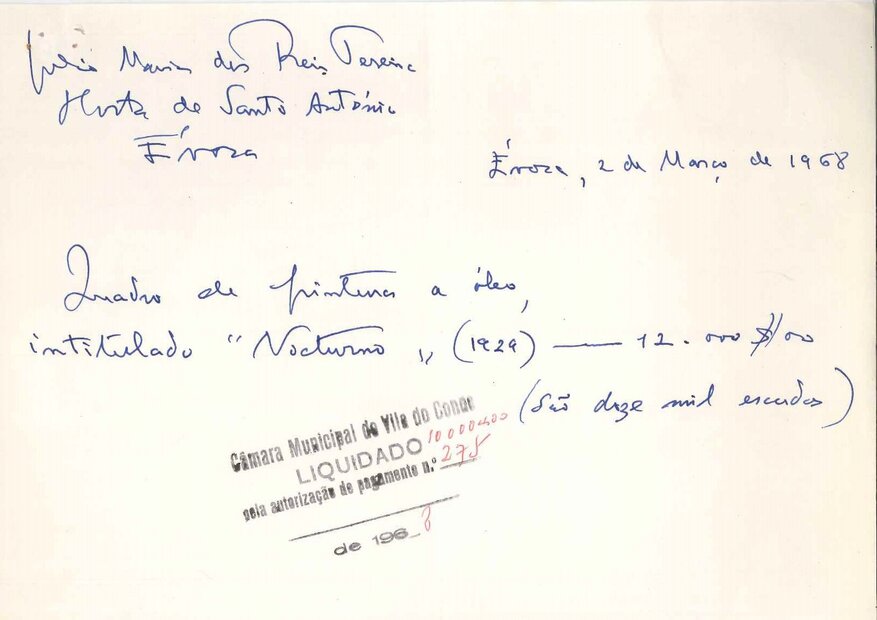 Julio Maria dos Reis Pereira
Horta de Santo António
Évora
Évora, 2 de Março de 1968
Quadro de pintura a óleo,
intitulado "Nocturno" (1929) —— 12.000$00
(São doze mil escudos)
Câmara Municipal de Vila do Conde
LIQUIDADO 10000$00
pela autorização de pagamento n.º 275
de 1968